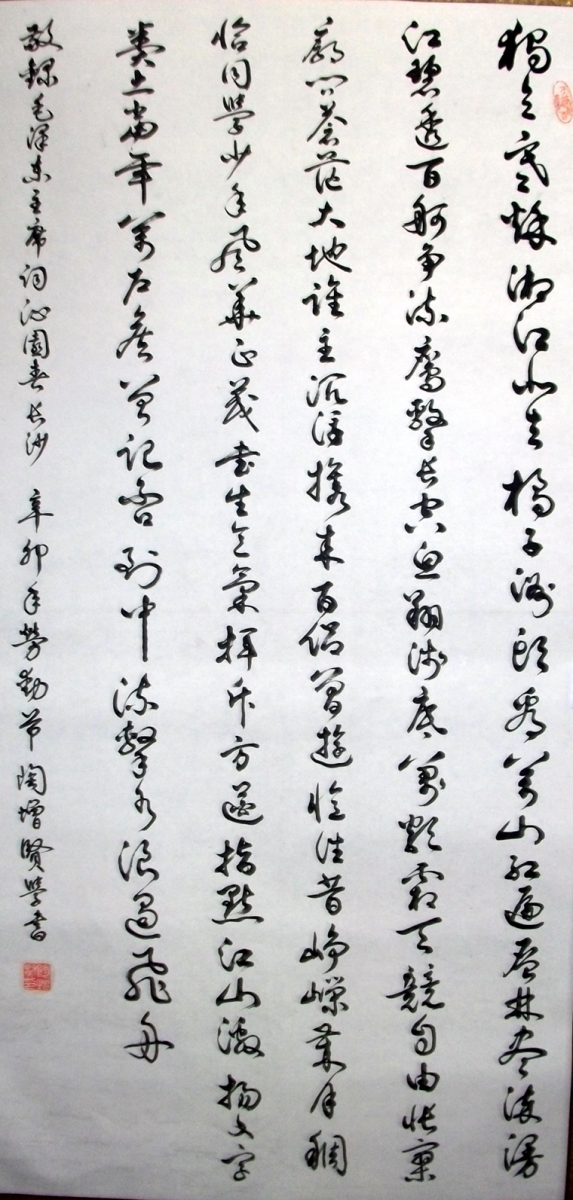 獨立寒秋湘江北去橘子洲頭看萬山紅遍層林尽染漫
江碧透百舸争流鷹擊長空魚翔淺底萬類霜天競自由悵寥
廓問蒼茫大地誰主沉浮攜来百侣曾遊憶往昔崢嶸歲月稠
恰同學少年風華正茂書生意氣揮斥方遒指點江山激揚文字
糞土當年萬户侯曾記否到中流擊水浪遏飛舟
敬録毛澤東主席詞沁園春長沙 辛卯年勞動節陶增賢學書